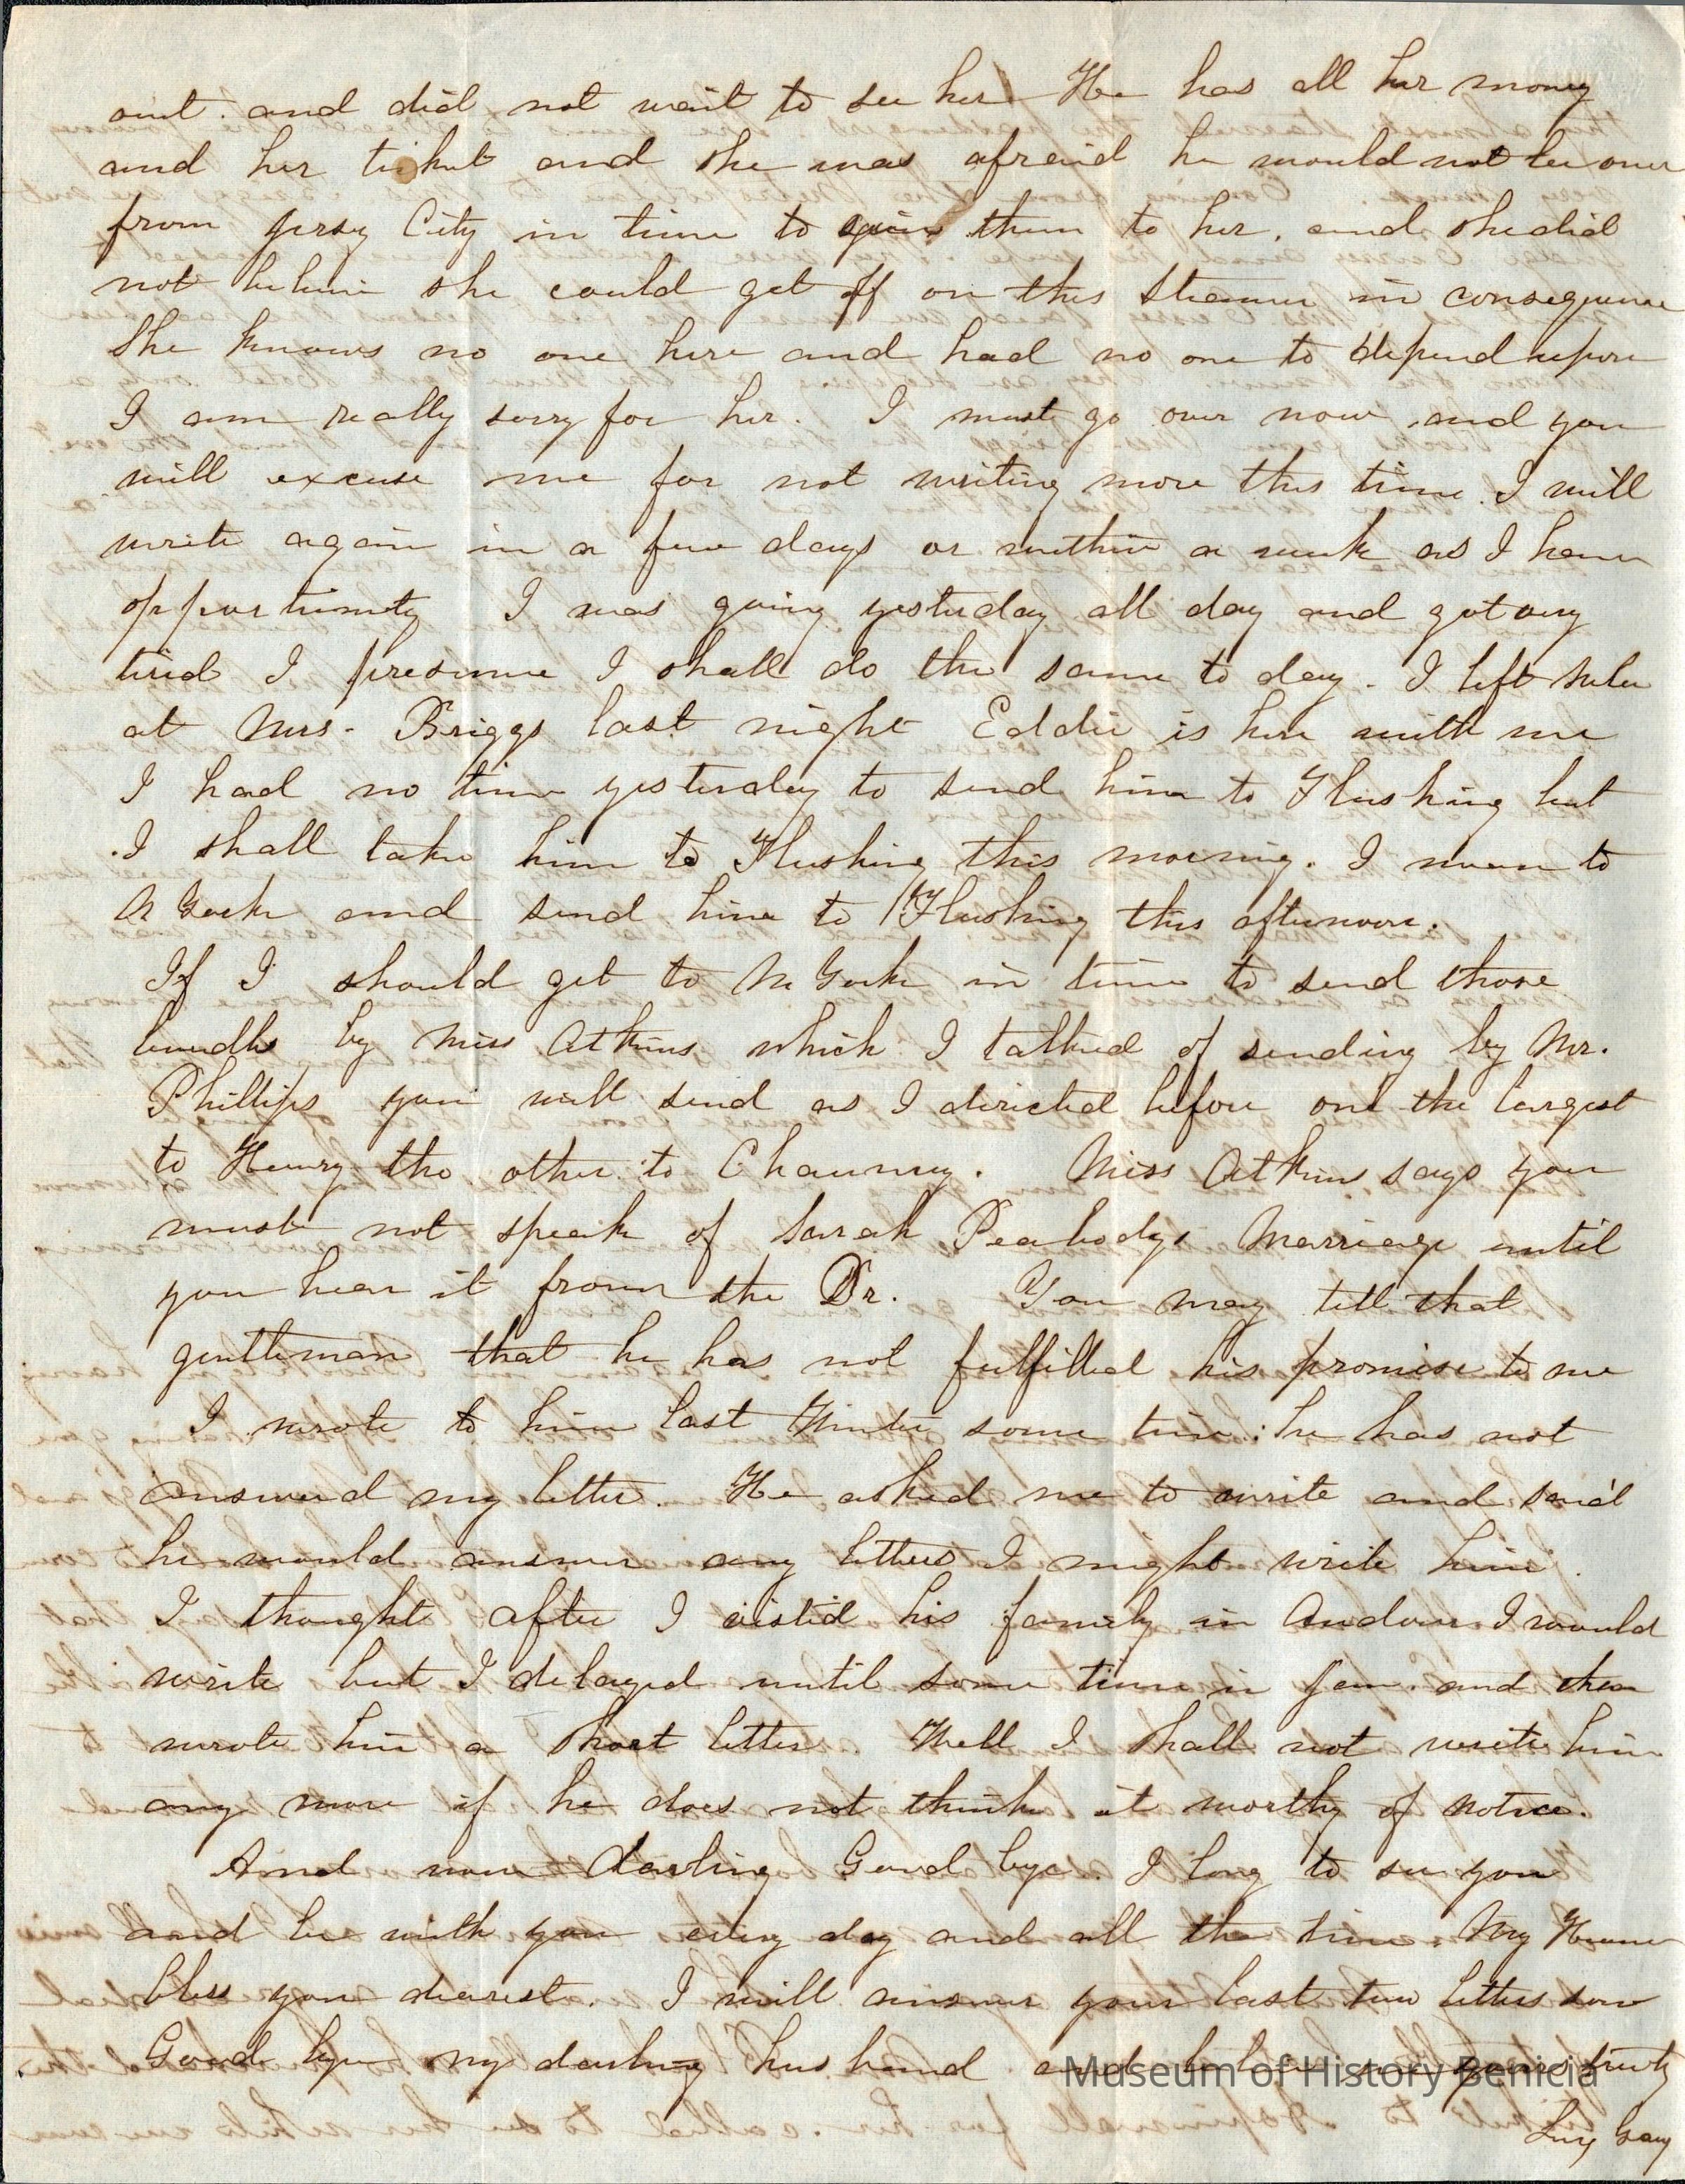 out. and did not wait to see her. He has all her money
and her ticket and she was afraid he would not be over
from Jersey City in time to give them to her, and she did
not believe she could get off on this steamer in consequence
She knows no one here and had no one to depend upon
I am really sorry for her. I must go over now and you
will excuse me for not writing more this time. I will
write again in a few days or within a week as I have
opportunity I was going yesterday all day and got very
tired I presume I shall do the same to day. I left
at Mrs. Briggs last night Eddie is here with me
I had no time yesterday to send him to Flushing but
I shall take him to Flushing this morning. I mean to
N York and send him to Flushing this afternoon.
If I should get to N York in time to send those
bundles by Miss Atkins which I talked of sending by Mr.
Phillips you will send as I directed before one the largest
to Henry the other to Chauncey. Miss Atkins says you
must not speak of Sarah Peabodys Marriage until
you hear it from the Dr. You may tell that
gentleman that he has not fulfilled his promise to me
I wrote to him last Winter some time: he has not
answered my letter. He asked me to write and said
he would answer any letters I might write him.
I thought after I visted his family in Andover I would
write but I delayed until some time in Jan. and then
wrote him a short letter. Well I shall not write him
any more if he does not think it worthy of notice.
And now darling Good bye. I long to see you
and be with you every day and all the time. May Heaven
bless you dearest. I will answer your last two letters soon
Good bye my darling husband and believe me yours truly
Lucy Gray
Museum of History Benicia